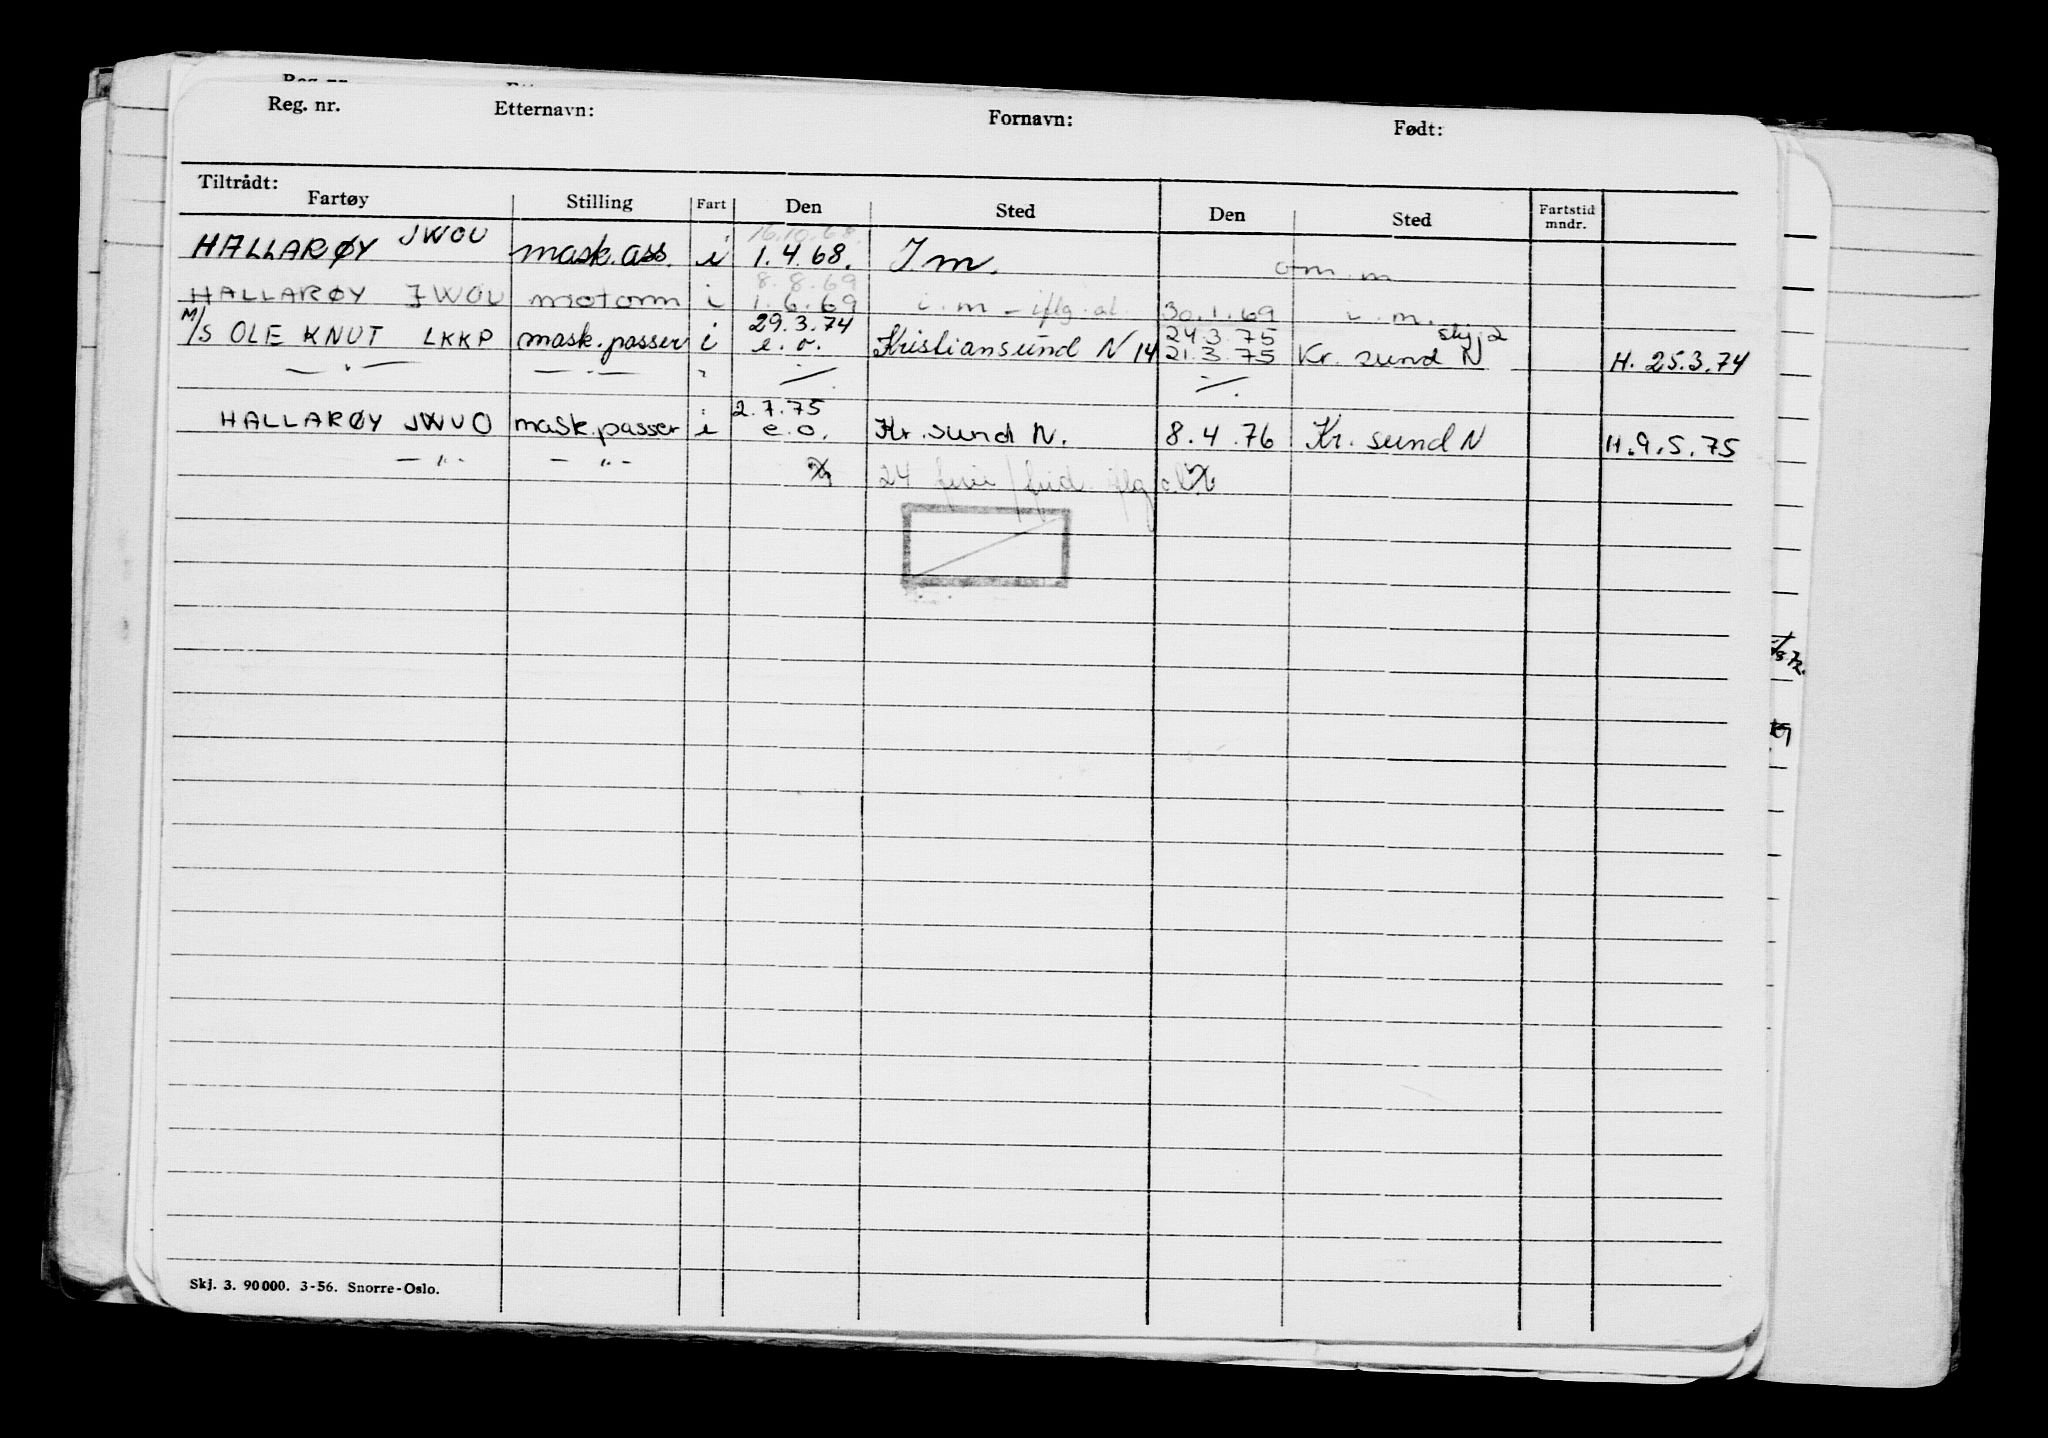 Reg. nr. Etternavn: Fornavn: Født:
Tiltrådt:
Fartøy Stilling Fart Den Sted Den Sted Fartstid mndr.
16.10.68.
HALLARØY JWOU mask.ass. i 1.4.68. I m. om.m
8.8.69
HALLARØY JWOU motorm i 1.6.69 i.m - iflg. al 30.1.69 i.m.
29.3.74 24.3.75 skj 2
M/S OLE KNUT LKKP mask.passer i e.o. Kristiansund N 14 21.3.75 Kr. sund N H. 25.3.74
— " — — " — " ./. ./.
2.7.75
HALLARØY JWUO mask.passer i e.o. Kr. sund N. 8.4.76 Kr. sund N H.9.5.75
— " - — " - 24 ferie/frid. iflg
Skj. 3. 90000. 3-56. Snorre-Oslo.